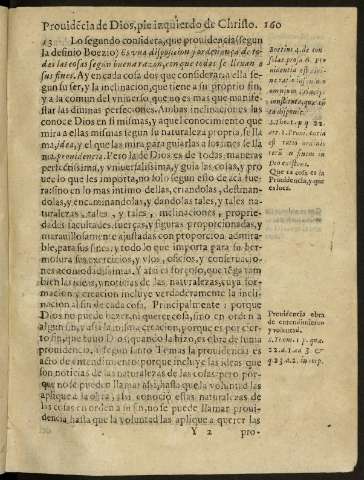 Prouidẽcia de Dios, pie izquierdo de Christo. 160
13 Lo segundo considera, que prouidencia (segun
la definio Boezio) Es vna disposicion y ordenança de to-
das las cosas segun buena razon, con que todas se lleuan a
sus fines. Ay en cada cosa dos que considerar: a ella se-
gun su ser, y la inclinacion, que tiene a su proprio fin,
y a la comun del vniuerso, que no es mas que manife-
star las diuinas perfecciones. Ambas inclinaciones las
conoce Dios en si mismas, y aquel conocimiento que
mira a ellas mismas segun su naturaleza propria, se lla
ma, idea, y el que las mira para guiarlas a sus fines se lla
ma prouidencia. Pero la de Dios es de todas maneras
perfectissima, y vniuersalissima, y guia las cosas, y pro
uee lo que les importa, no solo segun esso de acà fue
ra: sino en lo mas intimo dellas, criandolas, destinan-
dolas, y encaminandolas, y dandolas tales, y tales na-
turalezas, tales, y tales, inclinaciones, proprie-
dades facultades, fuerças, y figuras proporcionadas, y
marauillosamente ajustadas con proporcion admira-
ble, para sus fines: y todo lo que importa para su her-
mosura sus exercicios, y vsos, oficios, y conseruacio-
nes acomodadissimas. Y assi es forçoso, que tẽga tam
bien las ideas, y noticias de las naturalezas, cuya for-
macion y creacion incluye verdaderamente la incli-
nacion al fin de cada cosa. Principalmente: porque
Dios no puede hazer, ni querer cosa, sino en orden a
algun fin, y assi la misma creacion, porque es por cier-
to fin, que huuo Dios, quando la hizo, es obra de suma
prouidencia, i segun santo Tomas la prouidencia es
acto de entendimiento: porque incluye las ideas que
son noticias de las naturalezas de las cosas: pero por-
que no se pueden llamar assi, hasta que la voluntad las
aplique a la obra; assi conocio essas naturalezas de
las cosas en orden a su fin, no se puede llamar proui-
dencia hasta que la voluntad las aplique a querer las
Y 2 pro-
Boetius 4. de con
solat. prosa 6. Pro
uidentia est
ratio in
omnium
constituta, quæ cũ
cta disponit.
S. Tho. 1. p. q. 22
art. 1. Prouidentia
est ratio ordinis
rerũ in finem in
Deo existens.
Que es cosa es la
Prouidencia, y que
es loca.
Prouidencia obra
de entendimiento
y voluntad.
S. Thom. 1. p. qua.
22. a. 1. ad 3. &
q. 23. a. 2. in corp.